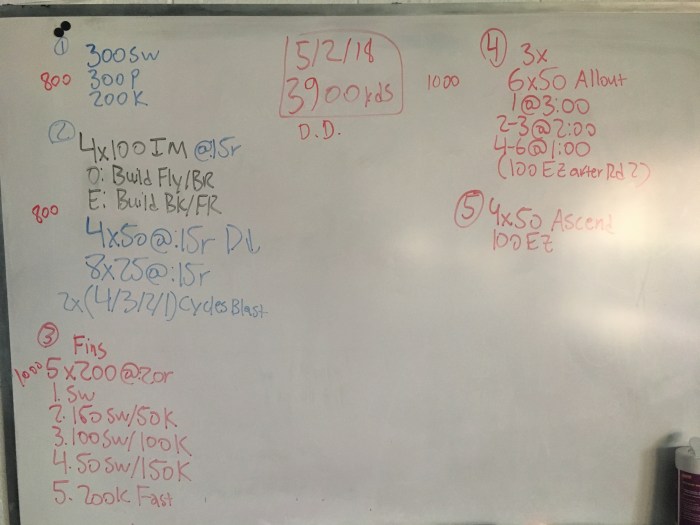 ①
300 SW
800 300 P
200 K
②
4x100 IM @15r
O: Build Fly/BR
E: Build BK/FR
800
4x50 @:15r D↓
8x25 @:15r
2x(4/3/2/1) Cycles Blast
③ Fins
1000 5x200 @20r
1. SW
2. 150 SW/50K
3. 100 SW/100K
4. 50 SW/150K
5. 200K Fast
5/2/18
3900 yds
D.D.
④ 3x
1000 6x50 Allout
1@3:00
2-3@2:00
4-6@1:00
(100 EZ after Rd 2)
⑤ 4x50 Ascend
100 EZ